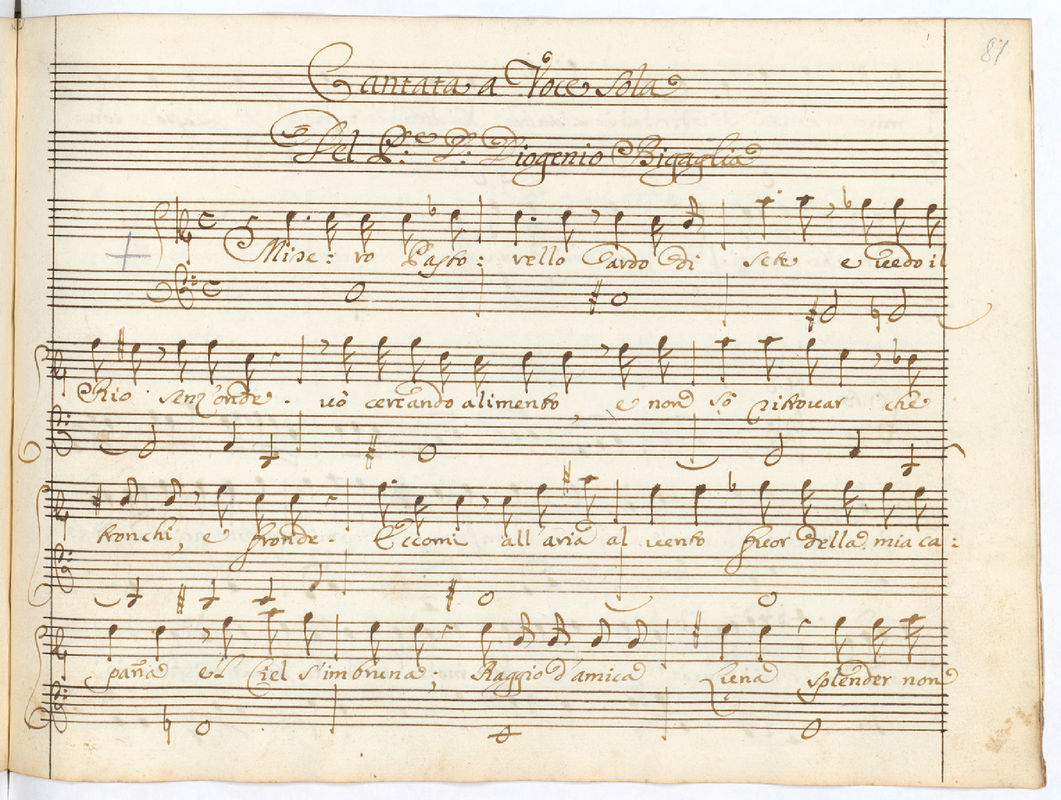 87
Cantata a Voce Sola
Del P:e D: Diogenio Bigaglia
Mise: ro Pasto: rello Lardo di sete e vedo il
Rio senz'onde. vò cercando alimento, e non sò ritrovar che
tronchi, e fronde Eccomi all aria al vento fuor della mia ca:
pañа el Ciel s'imbruna, Raggio d'amica Luna splender non